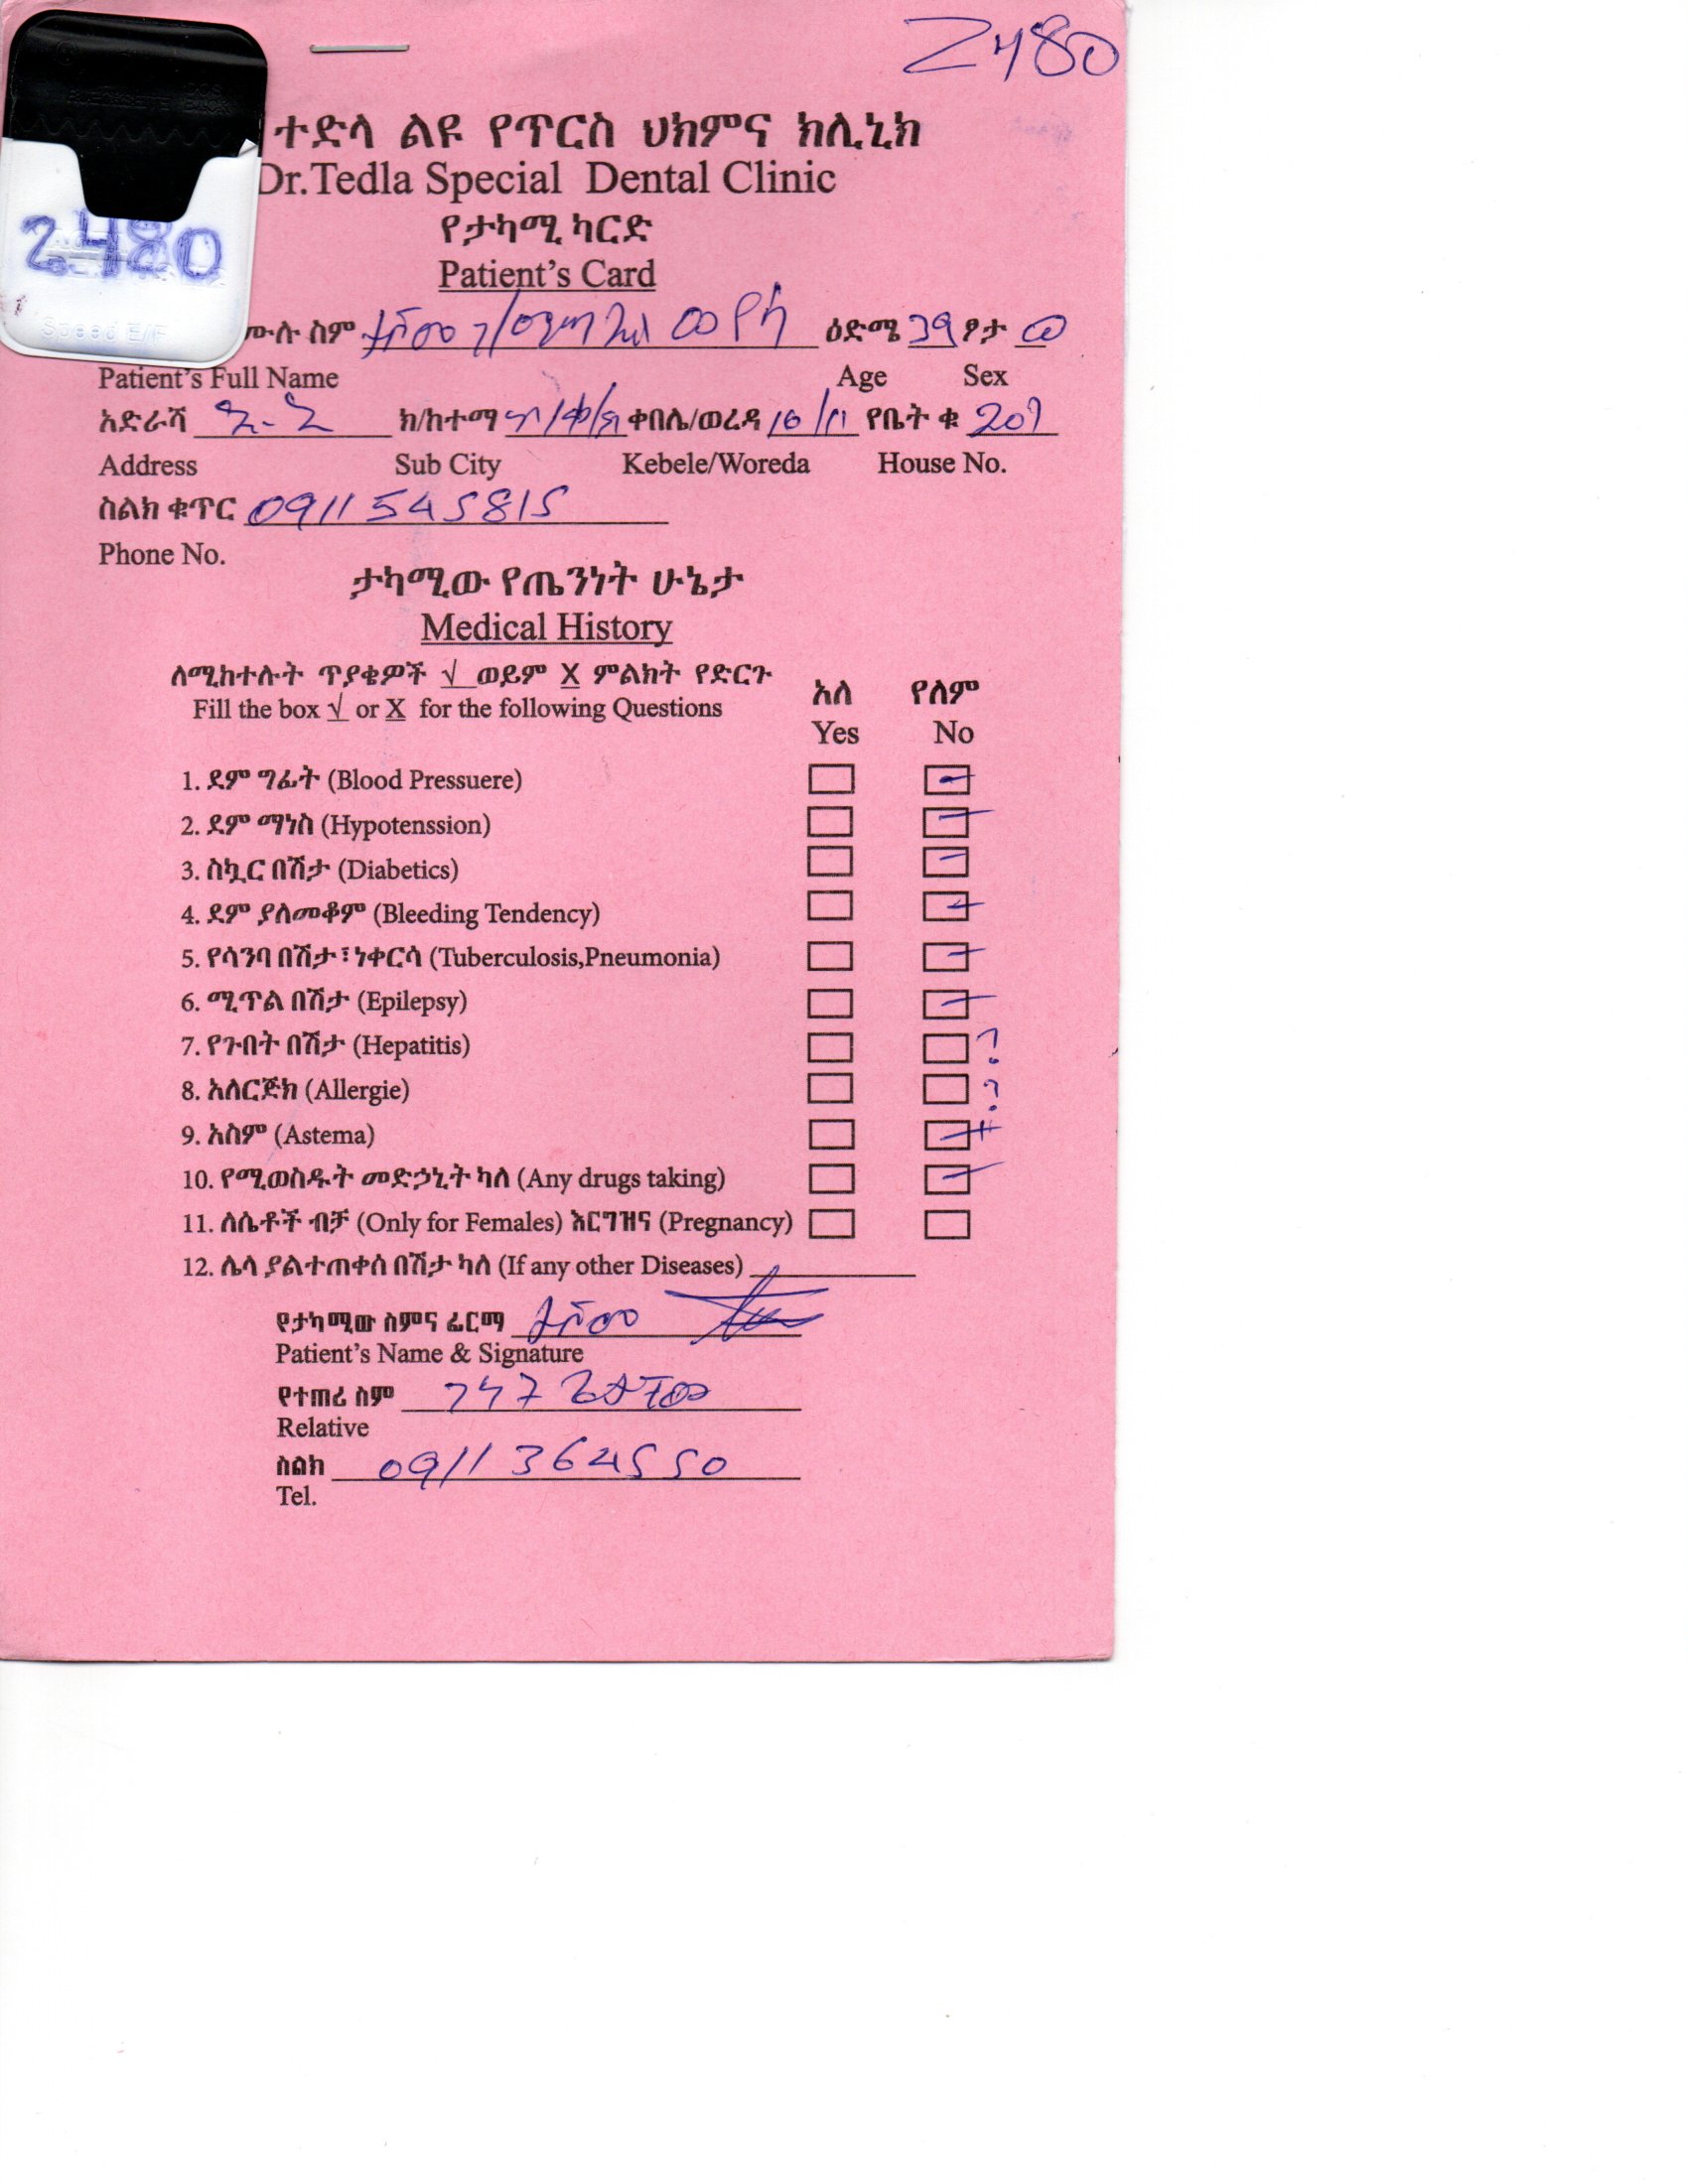 2480
ተድላ ልዩ የጥርስ ህክምና ክሊኒክ
Dr.Tedla Special Dental Clinic
2480
የታካሚ ካርድ
Patient's Card
ሙሉ ስም ዕድሜ 39 ፆታ ወ
Patient's Full Name Age Sex
አድራሻ አ.አ ክ/ከተማ ቀበሌ/ወረዳ 16/ የቤት ቁ 207
Address Sub City Kebele/Woreda House No.
ስልክ ቁጥር 0911 545815
Phone No.
ታካሚው የጤንነት ሁኔታ
Medical History
ለሚከተሉት ጥያቄዎች √ ወይም X ምልክት የድርጉ አለ የለም
Fill the box √ or X for the following Questions Yes No
1. ደም ግፊት (Blood Pressuere)
2. ደም ማነስ (Hypotenssion)
3. ስኳር በሽታ (Diabetics)
4. ደም ያለመቆም (Bleeding Tendency)
5. የሳንባ በሽታ፣ነቀርሳ (Tuberculosis,Pneumonia)
6. ሚጥል በሽታ (Epilepsy)
7. የጉበት በሽታ (Hepatitis) ?
8. አለርጅክ (Allergie) ?
9. አስም (Astema)
10. የሚወስዱት መድኃኒት ካለ (Any drugs taking)
11. ለሴቶች ብቻ (Only for Females) እርግዝና (Pregnancy)
12. ሌላ ያልተጠቀሰ በሽታ ካለ (If any other Diseases)
የታካሚው ስምና ፊርማ
Patient's Name & Signature
የተጠሪ ስም
Relative
ስልክ 0911 364550
Tel.